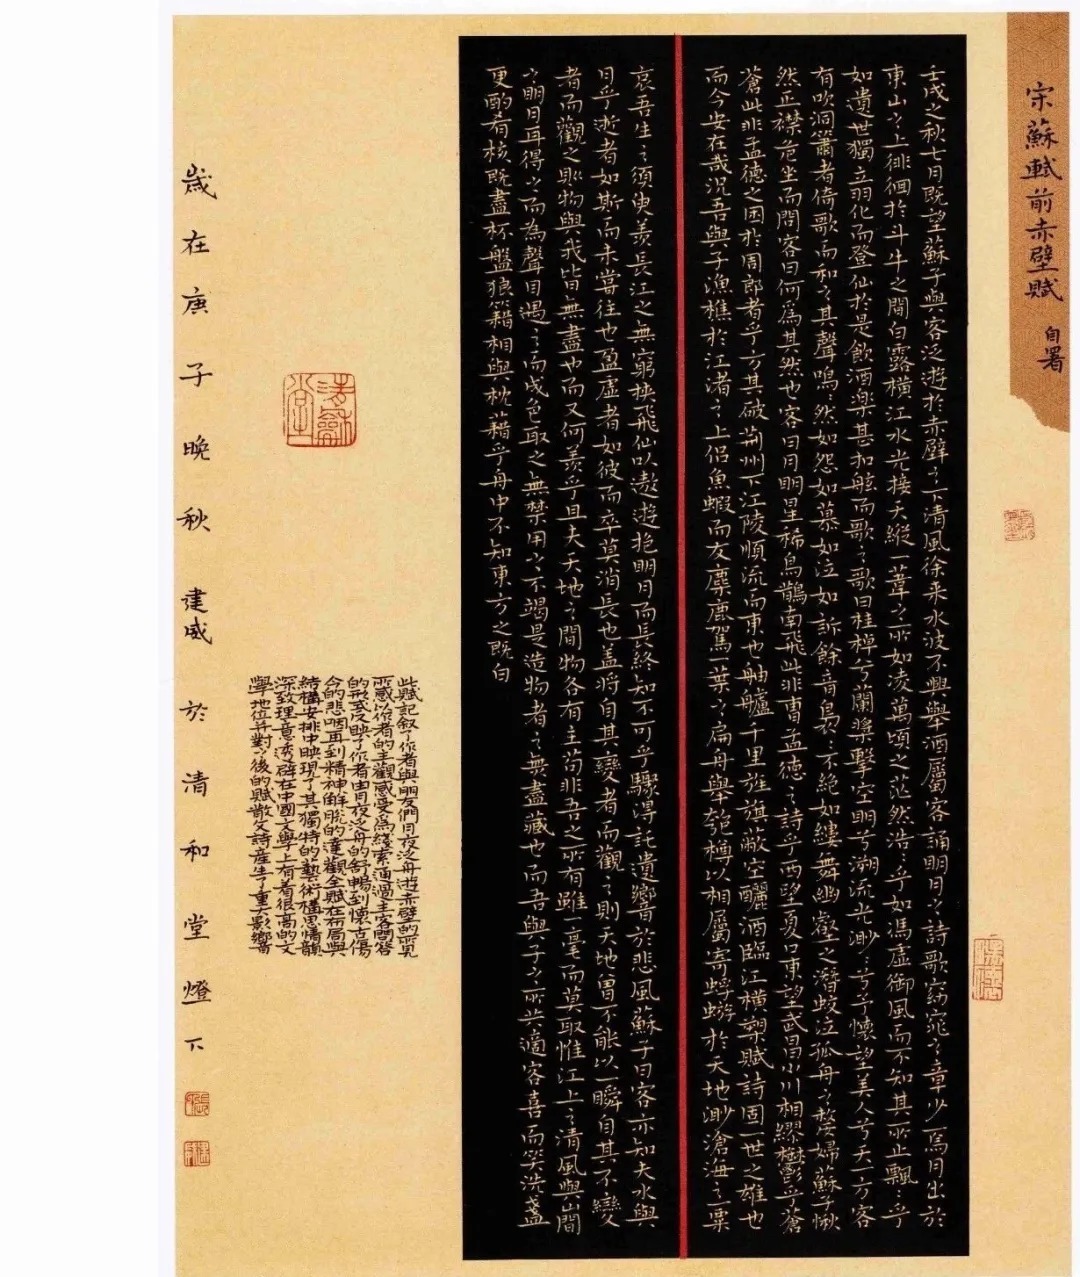 宋蘇軾前赤壁賦 自署
壬戌之秋七月既望蘇子與客泛遊於赤壁〻下清風徐来水波不興舉酒屬客誦明月〻詩歌窈窕〻章少焉月出於
東山〻上徘徊於斗牛之間白露橫江水光接天縱一葦〻所如凌萬頃之茫然浩〻乎如馮虛御風而不知其所止飄〻乎
如遺世獨立羽化而登仙於是飲酒樂甚扣舷而歌〻歌曰桂棹兮蘭槳擊空明兮溯流光渺〻兮予懷望美人兮天一方客
有吹洞簫者倚歌而和〻其聲嗚〻然如怨如慕如泣如訴餘音裊〻不絕如縷舞幽壑之潛蛟泣孤舟〻嫠婦蘇子愀
然正襟危坐而問客曰何為其然也客曰月明星稀烏鵲南飛此非曹孟德〻詩乎西望夏口東望武昌山川相繆鬱乎蒼
蒼此非孟德之困於周郎者乎方其破荊州下江陵順流而東也舳艫千里旌旗蔽空釃酒臨江橫槊賦詩固一世之雄也
而今安在哉況吾與子漁樵於江渚〻上侶魚蝦而友麋鹿駕一葉〻扁舟舉匏樽以相屬寄蜉蝣於天地渺滄海〻一粟
哀吾生〻須臾羨長江之無窮挾飛仙以遨遊抱明月而長終知不可乎驟得託遺響於悲風蘇子曰客亦知夫水與
月乎逝者如斯而未嘗往也盈虛者如彼而卒莫消長也蓋將自其變者而觀〻則天地曾不能以一瞬自其不變
者而觀之則物與我皆無盡也而又何羨乎且夫天地〻間物各有主苟非吾之所有雖一毫而莫取惟江上〻清風與山間
〻明月耳得〻而為聲目遇〻而成色取之無禁用〻不竭是造物者〻無盡藏也而吾與子〻所共適客喜而笑洗盞
更酌肴核既盡杯盤狼籍相與枕藉乎舟中不知東方之既白
此賦記叙了作者與朋友們月夜泛舟遊赤壁的所見
所感以作者的主觀感受為綫索通過主客問答
的形式反映了作者由月夜泛舟的舒暢到懷古傷
今的悲咽再到精神解脫的達觀全賦在布局與
結構安排中映現了其獨特的藝術構思情韻
深致理意透辟在中國文學上有着很高的文
學地位并對〻後的賦散文詩產生了重大影響
歲在庚子晚秋建威於清和堂燈下
清和堂